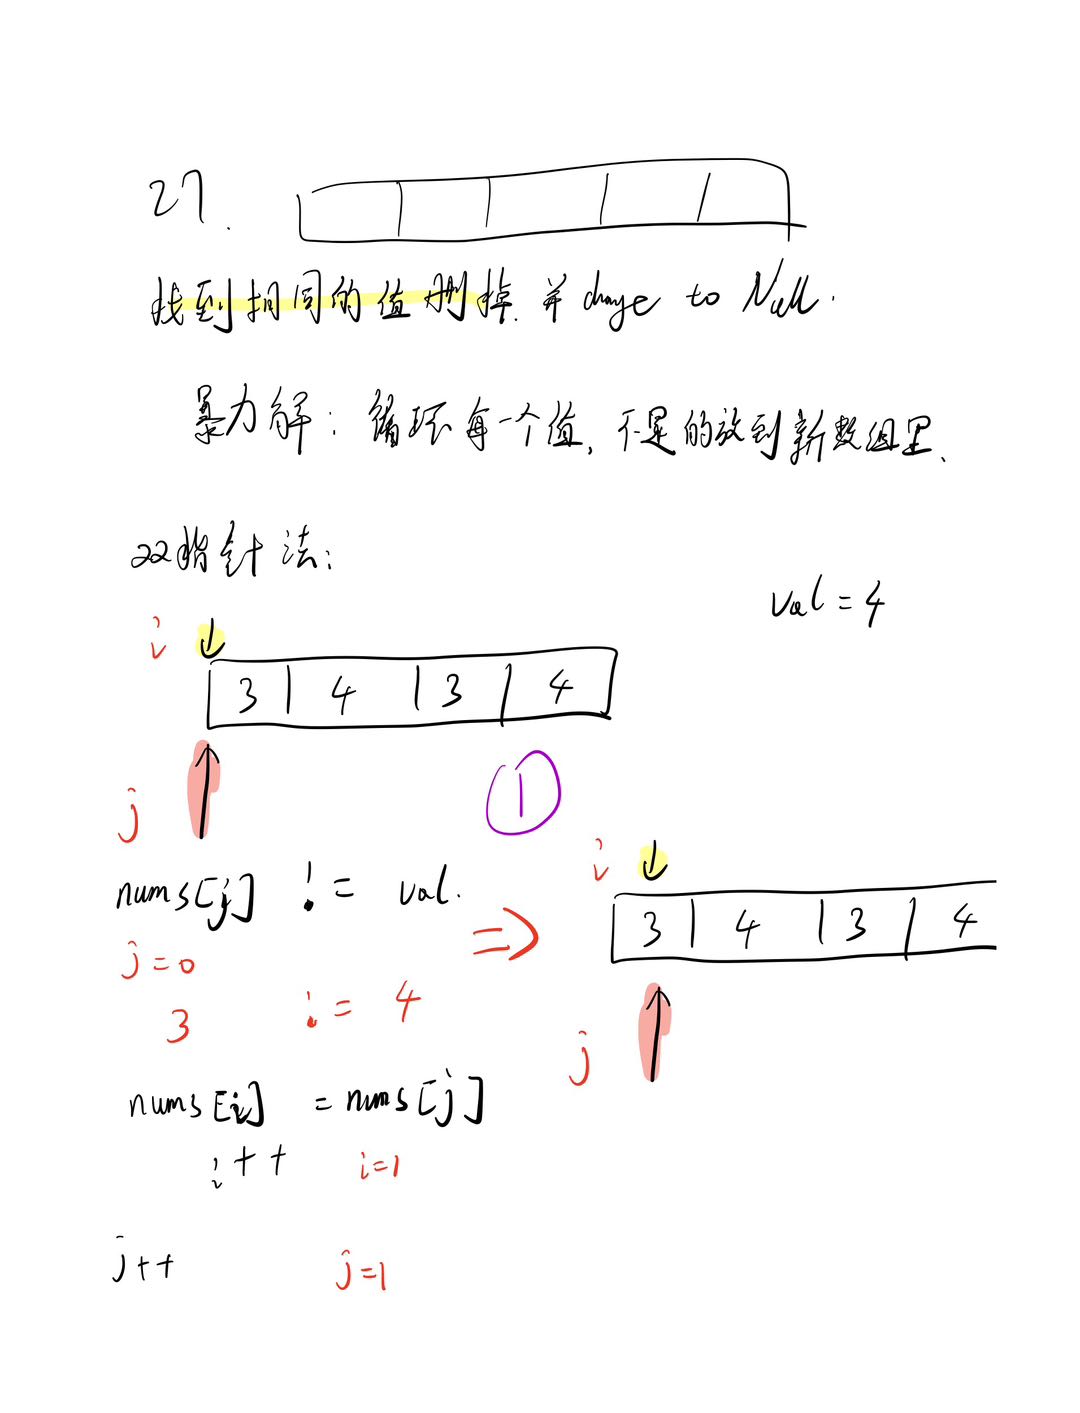 27.
找到相同的值删掉. 并 change to Null.
暴力解: 循环每一个值, 不是的放到新数组里.
22指针法:
val = 4
i
3 4 3 4
j
①
nums[j] != val.
j=0
3 != 4
nums[i] = nums[j]
i++ i=1
j++ j=1
=>
i
3 4 3 4
j